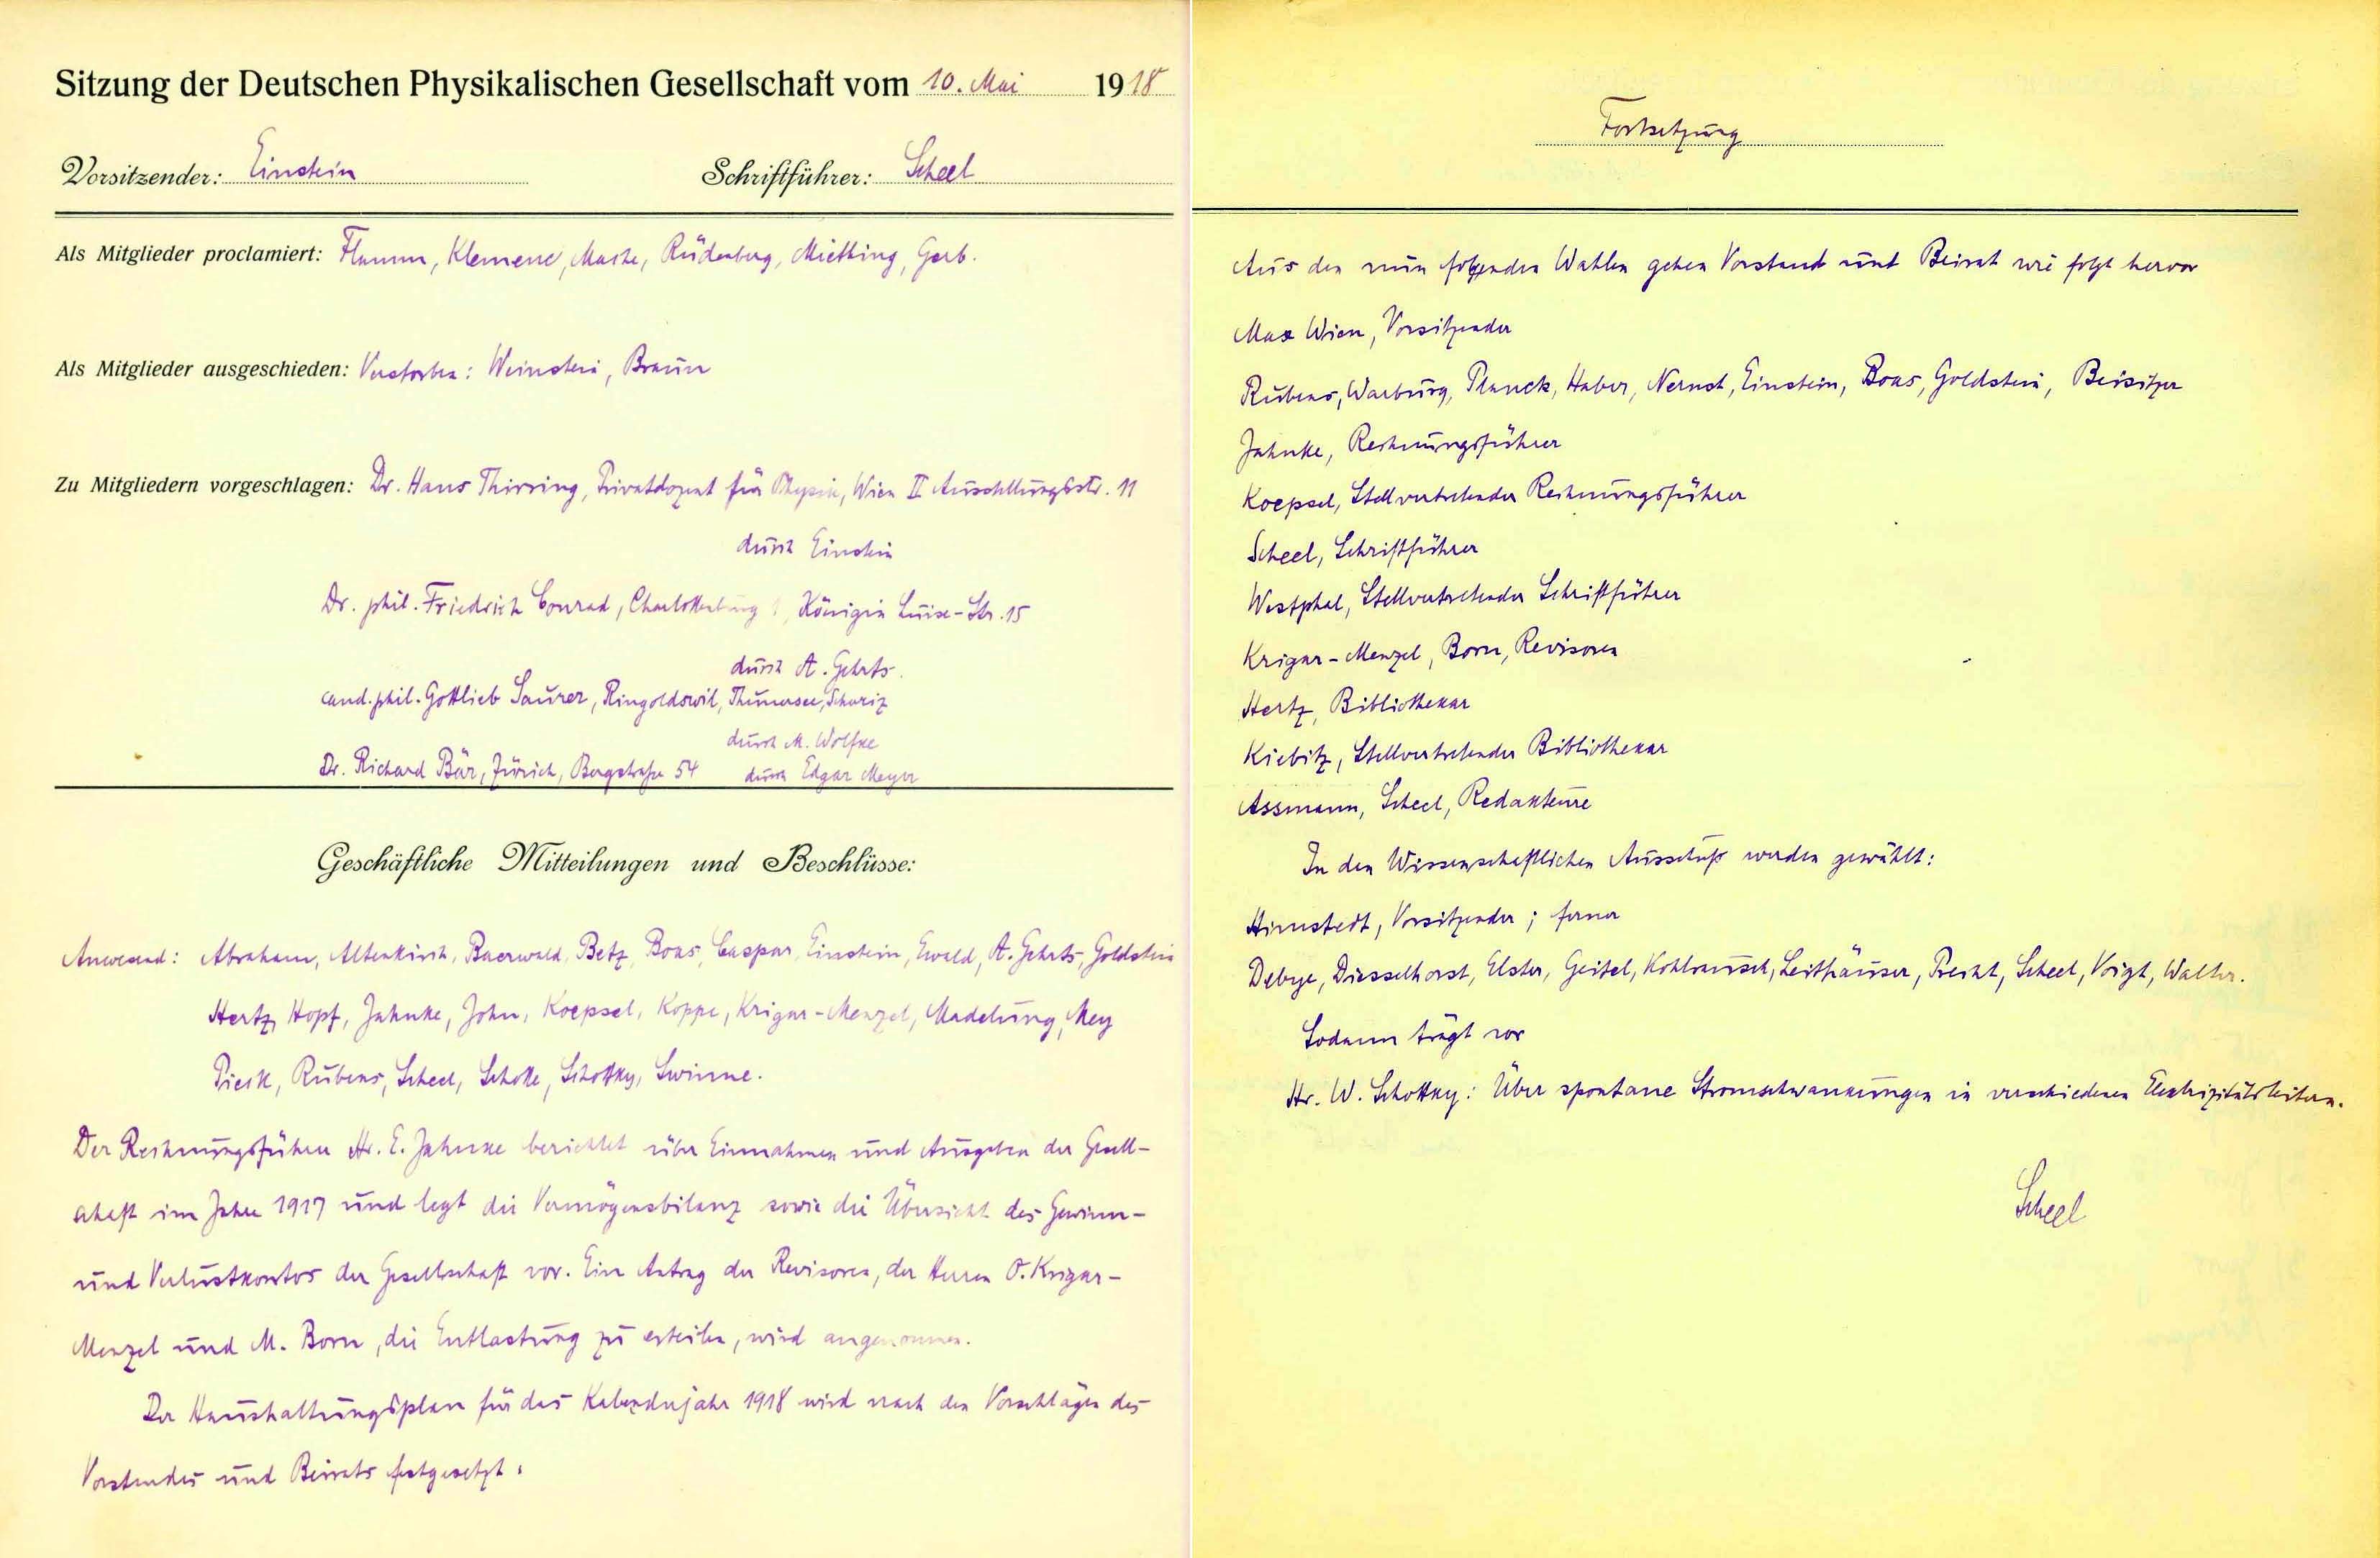 Sitzung der Deutschen Physikalischen Gesellschaft vom 10. Mai 1918
Vorsitzender: Einstein Schriftführer: Scheel
Als Mitglieder proclamiert: Flamm, Klemenc, Mache, Rüdenberg, Miething, Gerb.
Als Mitglieder ausgeschieden: Verstorben: Weinstein, Braun
Zu Mitgliedern vorgeschlagen: Dr. Hans Thirring, Privatdozent für Physik, Wien II Ausstellungsstr. 11
durch Einstein
Dr. phil. Friedrich Conrad, Charlottenburg, Königin Luise-Str. 15
durch A. Gehrts.
cand. phil. Gottlieb Saurer, Ringoldswil, Thunersee, Schweiz
durch M. Wolfke
Dr. Richard Bär, Zürich, Bergstraße 54 durch Edgar Meyer
Geschäftliche Mitteilungen und Beschlüsse:
Anwesend: Abraham, Altenkirch, Baerwald, Betz, Boas, Caspar, Einstein, Ewald, A. Gehrts, Goldstein
Hertz, Hopf, Jahnke, John, Koepsel, Koppe, Krigar-Menzel, Madelung, Mey
Pieck, Rubens, Scheel, Schottky, Swinne.
Der Rechnungsführer Hr. E. Jahnke berichtet über Einnahmen und Ausgaben der Gesell-
schaft im Jahre 1917 und legt die Vermögensbilanz sowie die Übersicht des Gewinn-
und Verlustkontos der Gesellschaft vor. Ein Antrag der Revisoren, der Herren O. Krigar-
Menzel und M. Born, die Entlastung zu erteilen, wird angenommen.
Der Haushaltungsplan für das Kalenderjahr 1918 wird nach den Vorschlägen des
Vorstandes und Beirats festgesetzt.
Fortsetzung
Aus den nun folgenden Wahlen gehen Vorstand und Beirat wie folgt hervor
Max Wien, Vorsitzender
Rubens, Warburg, Planck, Haber, Nernst, Einstein, Boas, Goldstein, Beisitzer
Jahnke, Rechnungsführer
Koepsel, Stellvertretender Rechnungsführer
Scheel, Schriftführer
Westphal, Stellvertretender Schriftführer
Krigar-Menzel, Born, Revisoren
Hertz, Bibliothekar
Kiebitz, Stellvertretender Bibliothekar
Assmann, Scheel, Redakteure
In den Wissenschaftlichen Ausschuß werden gewählt:
Himstedt, Vorsitzender; ferner
Debye, Diesselhorst, Elster, Geitel, Kohlrausch, Leithäuser, Precht, Scheel, Voigt, Walter.
Sodann trägt vor
Hr. W. Schottky: Über spontane Stromschwankungen in verschiedenen Elektrizitätsleitern.
Scheel